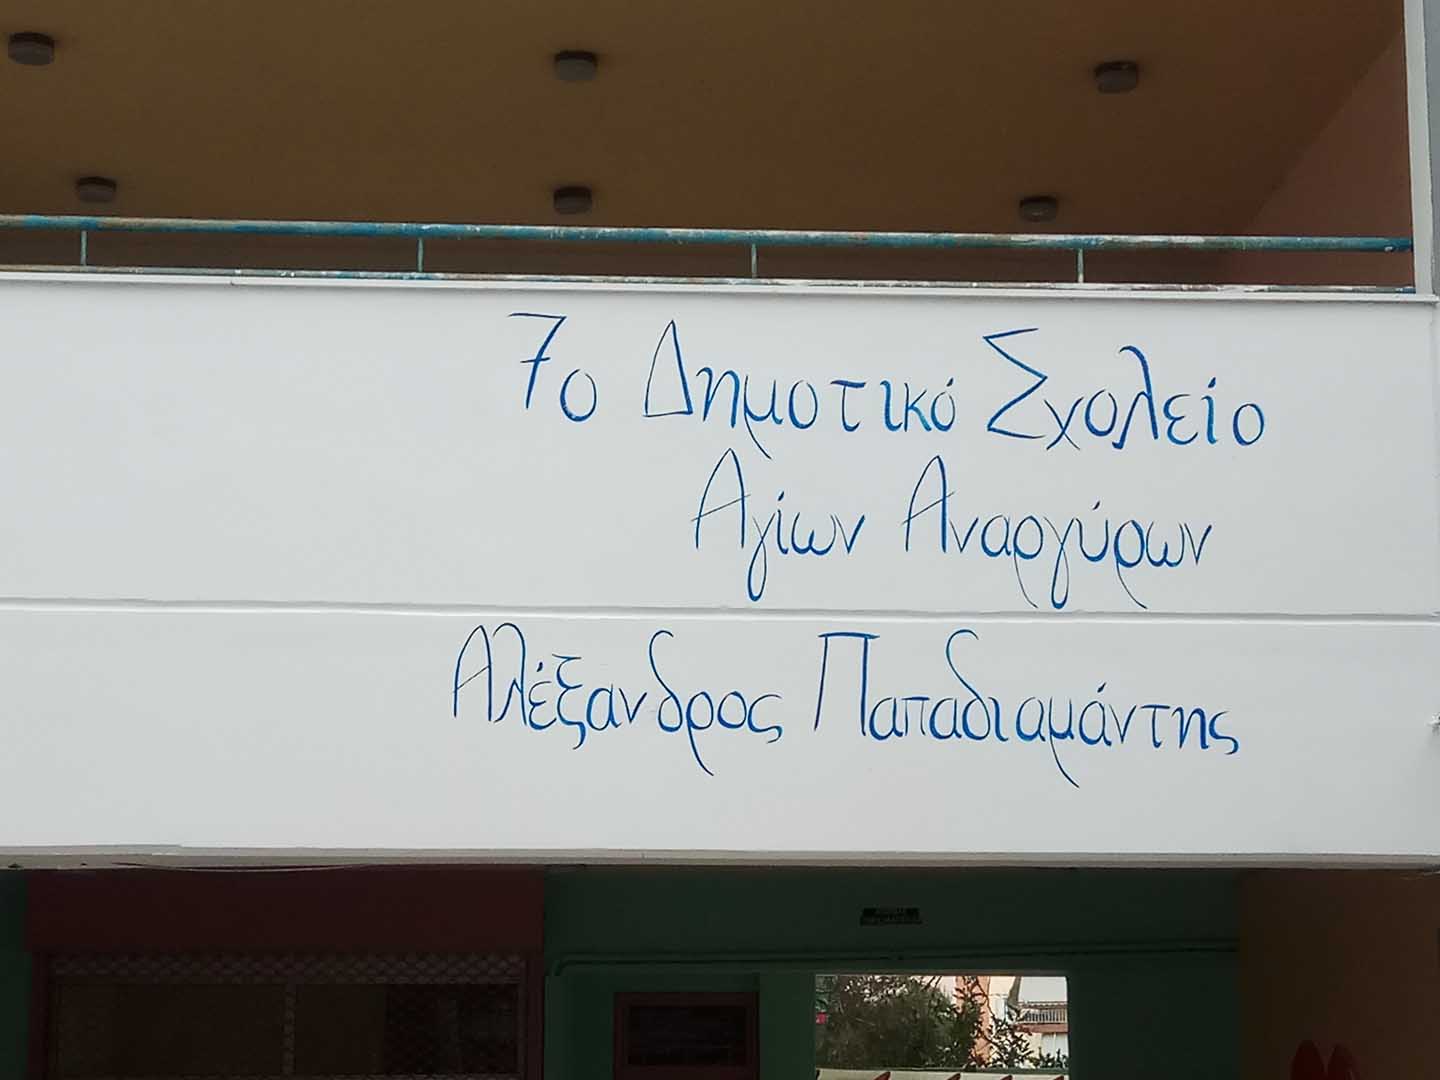 7ο Δημοτικό Σχολείο
Αγίων Αναργύρων
Αλέξανδρος Παπαδιαμάντης